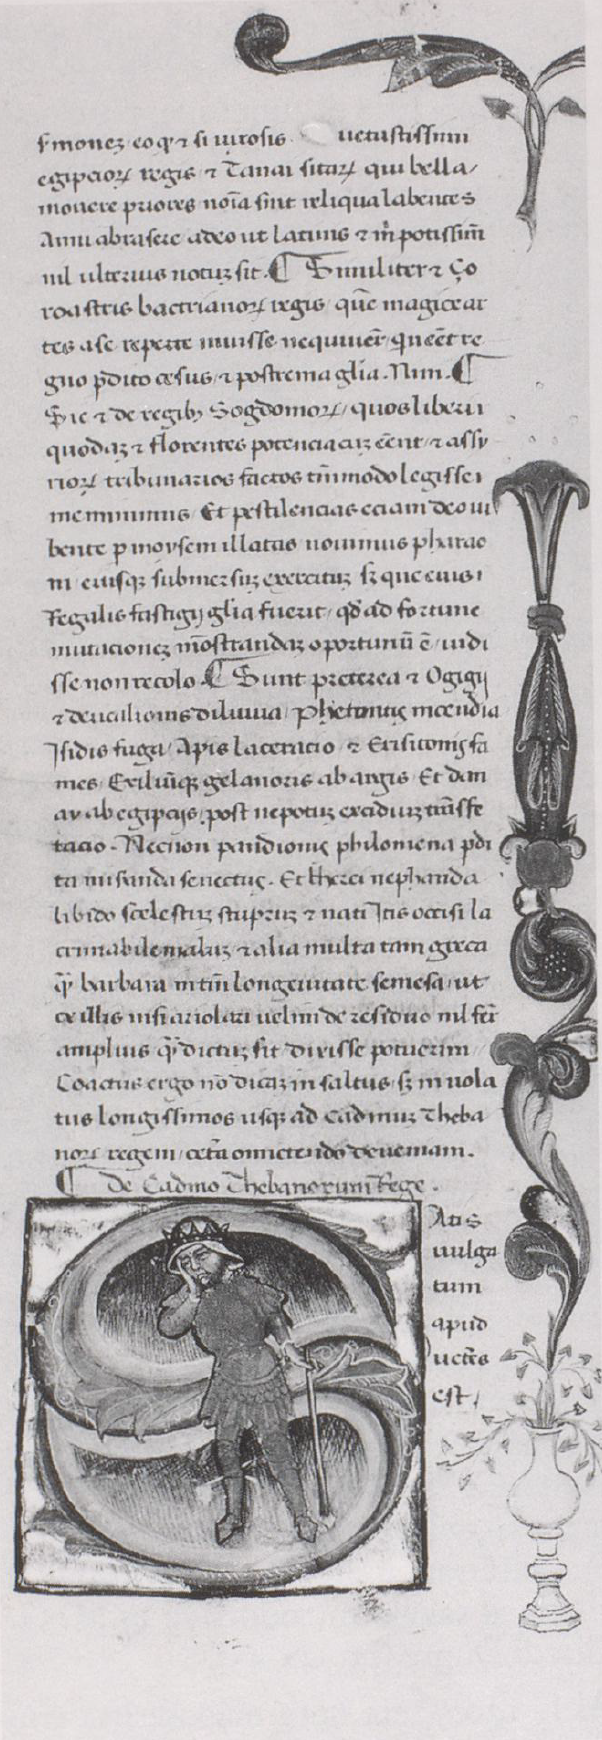 s̄monez eo qꝫ ⁊ si uixosis uetustissim
egipcioꝝ regis ⁊ Tanai sitaꝝ qui bella
mouere priores noīa sint reliqua labentes
Anni abrasere adeo ut latinis ⁊ m̄ potissim̄
nil ulterius notuz sit. ¶ Similiter ⁊ Ço
roastris bactrianoꝝ regis / quē magice ar
tes a se reperte iuuisse nequiuer̄ / qn eēt re
gno p̄dito cesus, ⁊ postrema glia. Nini. ¶
Sic ⁊ de regibꝫ Sogdomoꝝ / quos liberi
quodaz ⁊ florentes potencia eēnt / ⁊ assy
rioꝝ tributarios factos tm̄modo legisse
meminimus / Et pestilencias eciam deo iu
bente p moysem illatas nouimus pharao
ni / eiusqꝫ submersuz exercituz sꝫ que eius
Regalis fastigij glia fuerit / qd ad fortune
mutacionez mōstrandaz oportunū ē / uidi
sse non recolo ¶ Sunt preterea ⁊ Ogigij
⁊ deucalionis diluuia / Phetontis incendia
Isidis fuga / Apis laceratio ⁊ Erisitonis fa
mes / Exiliūqꝫ gelanoris ab argis / Et dan
ay ab egipcijs post nepotuz excidiuz trāsfe
tacio. Necnon pandionis philomena pdi
ta miseranda senectus. Et therei nephanda
libido scelestuz stupruz ⁊ nati Itis occisi la
crimabile maluz / ⁊ alia multa tam greca
qꝫ barbara in tm̄ longeuitate semesa / ut
ex illis nisi ariolari uelim de residuo nil fer̄
amplius qꝫ dictuz sit dixisse potuerim
Coactus ergo nō dicaz in saltus / sꝫ in uola
tus longissimos usqꝫ ad Cadmuz Theba
noꝝ regem / cetera omictendo deueniam.
¶ De Cadmo Thebanorum Rege.
S Atis
uulga
tum
apud
ueteres
est /